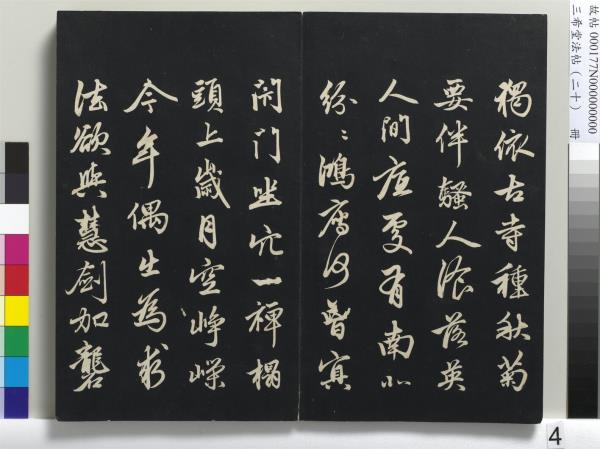 獨依古寺種秋菊
要伴騷人湌落英
人間底處有南北
紛〻鴻雁何曾冥
閉門坐穴一禪榻
頭上歲月空崢嶸
今年偶出為求
法欲與慧劍加礱
故帖 000177N000000000
三希堂法帖(二十) 冊
4